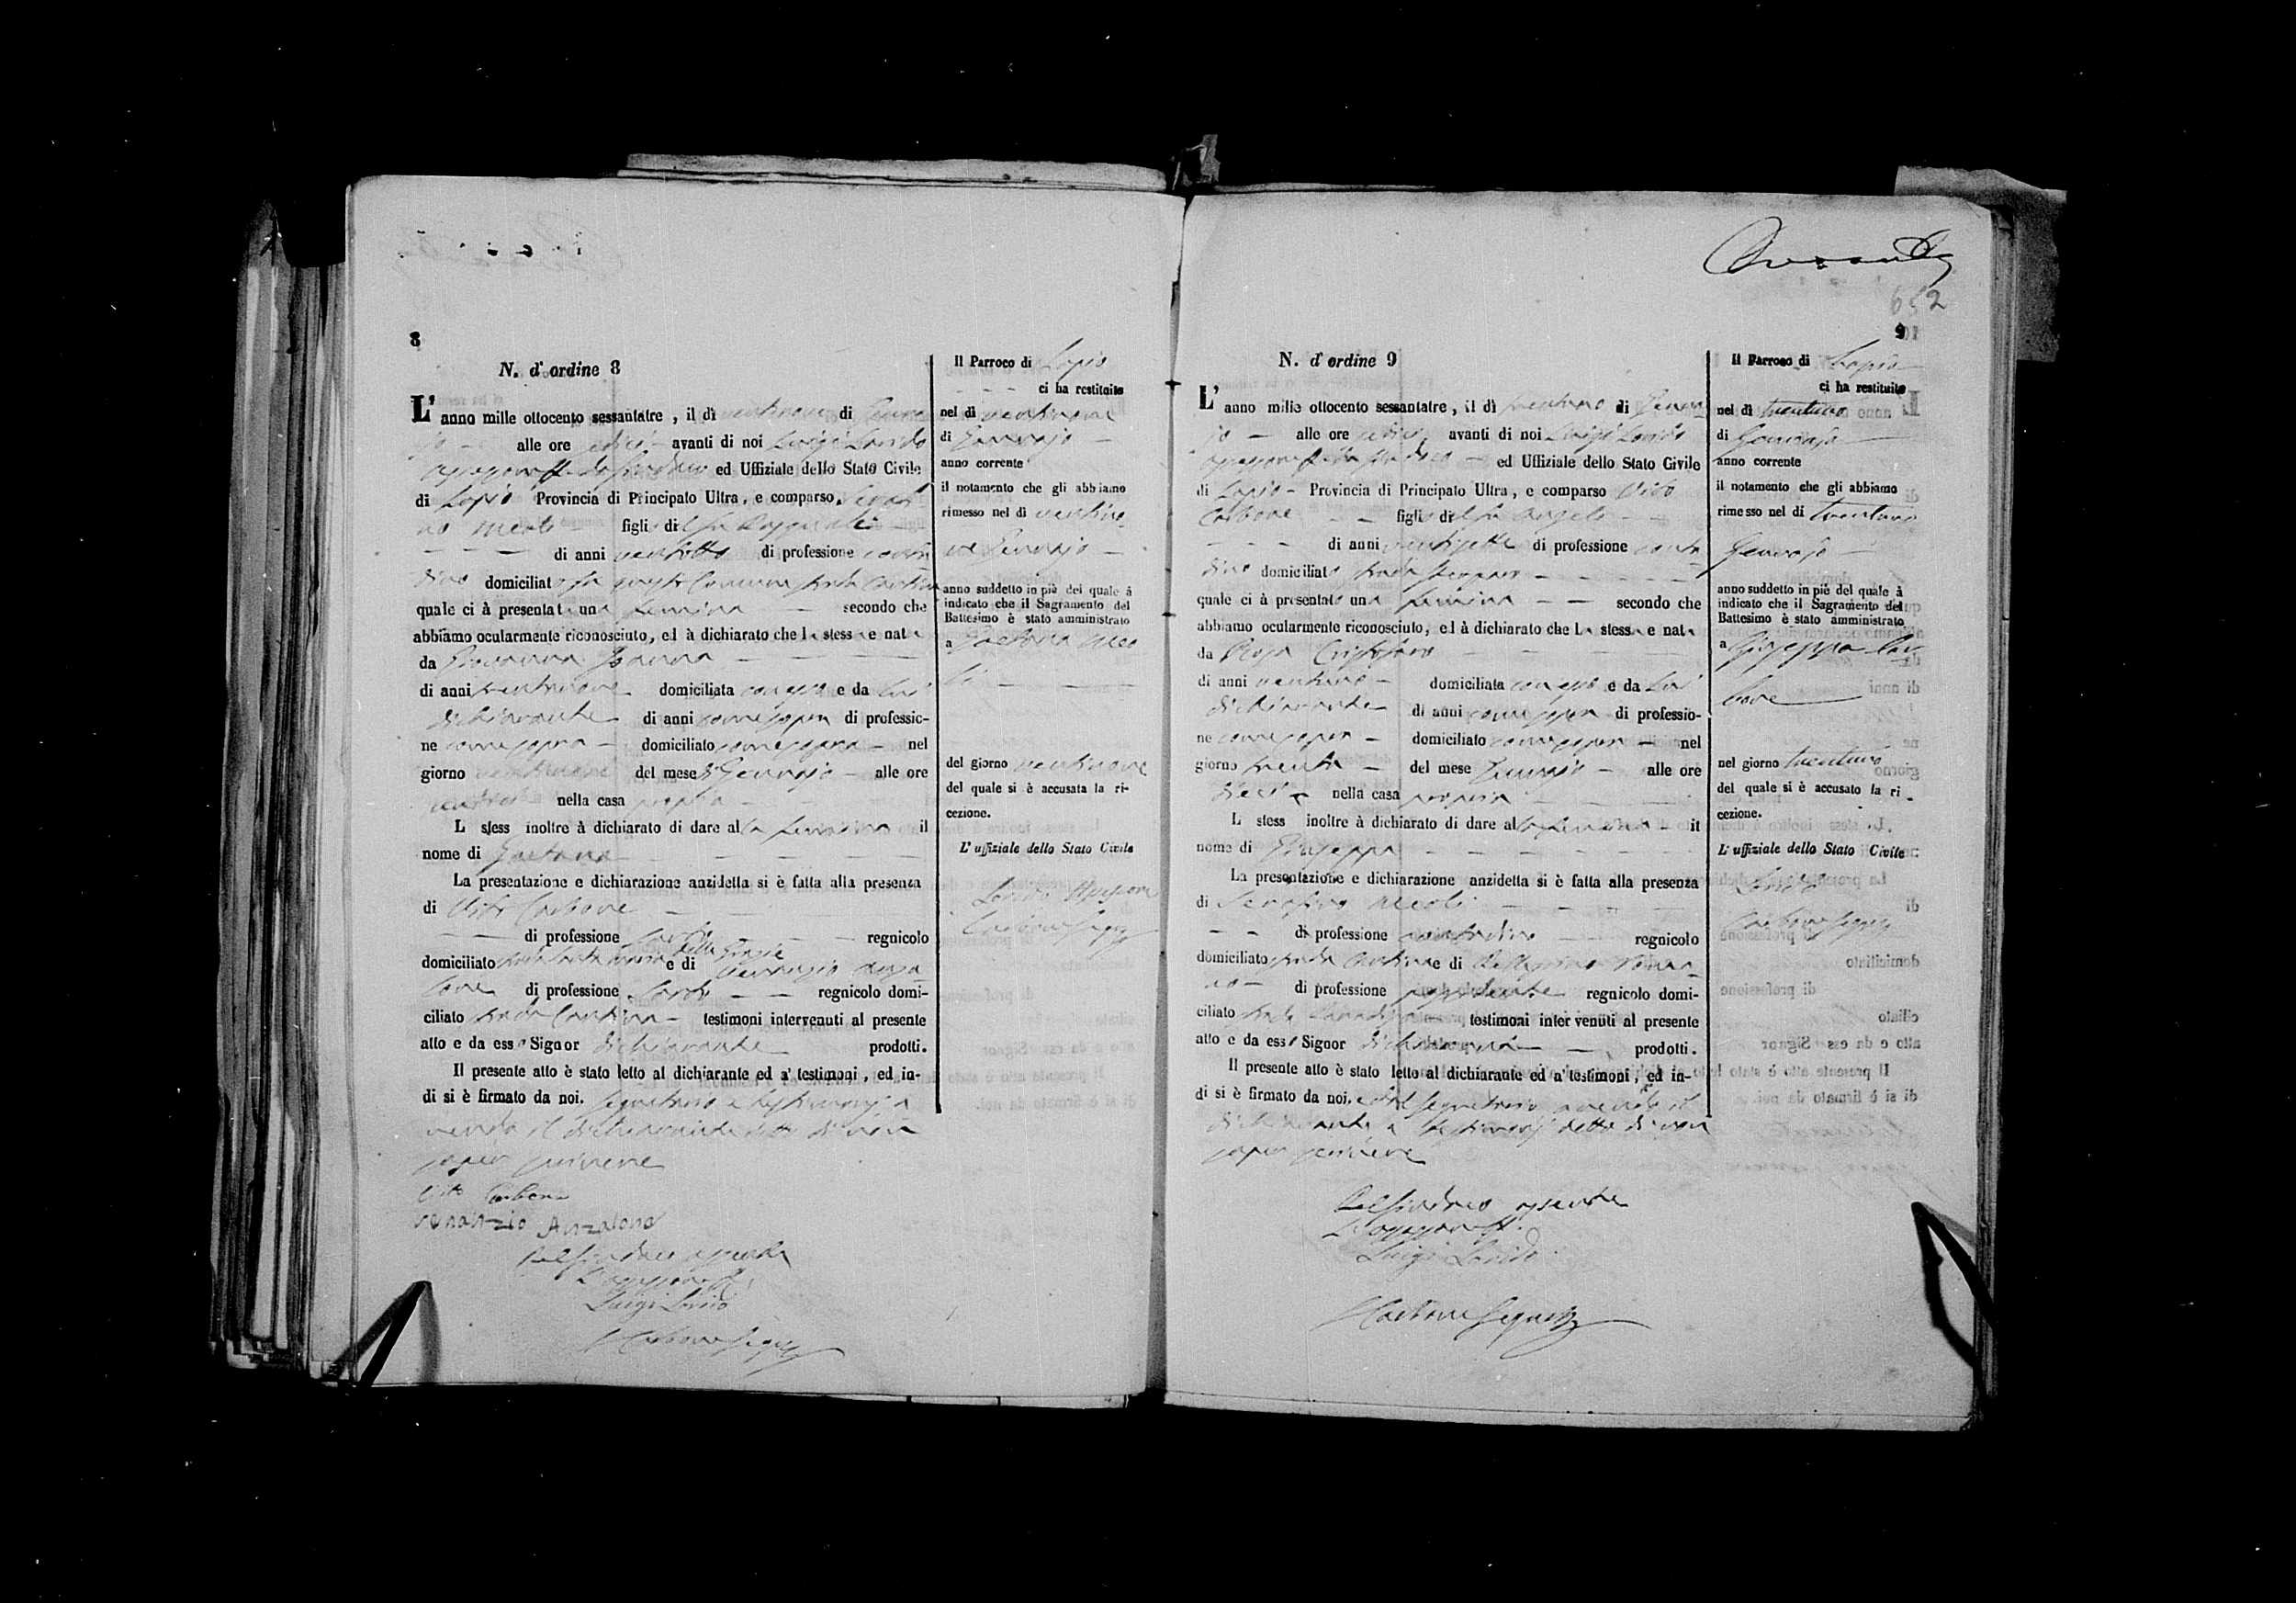 8
N. d'ordine 8
L'anno mille ottocento sessantatre, il dì ventinove di Genna-
jo alle ore avanti di noi Luigi
ed Uffiziale dello Stato Civile
di Lapio Provincia di Principato Ultra, e comparso
figlio di Pasquale
di anni ventotto di professione conta
dino domiciliato questo Comune strada Cantina
quale ci à presentato una femina secondo che
abbiamo ocularmente riconosciuto, ed à dichiarato che la stessa e nata
da Giovanna
di anni ventinove domiciliata con esso e da lui
dichiarante di anni come sopra di professio-
ne come sopra domiciliato come sopra nel
giorno ventinove del mese di Gennajo alle ore
nella casa propria
L stess inoltre à dichiarato di dare alla femina il
nome di Gaetana
La presentazione e dichiarazione anzidetta si è fatta alla presenza
di Vito Carbone
di professione sarto regnicolo
domiciliato strada Santa Maria delle Grazie e di Venanzio Anza
lone di professione sarto regnicolo domi-
ciliato strada Cantina testimoni intervenuti al presente
atto e da esso Signor dichiarante prodotti.
Il presente atto è stato letto al dichiarante ed a' testimoni, ed in-
di si è firmato da noi. segretario e testimonj a
vendo il dichiarante detto di non
saper scrivere
Vito Carbone
venanzio Anzalone
Pel Sindaco assente
L'assessore
Luigi
Carbone Segret
Il Parroco di Lapio
ci ha restituito
nel dì ventinove
di Gennajo
anno corrente
il notamento che gli abbiamo
rimesso nel dì ventino
ve Gennajo
anno suddetto in piè del quale à
indicato che il Sagramento del
Battesimo è stato amministrato
a Gaetana
del giorno ventinove
del quale si è accusata la ri-
cezione.
L'uffiziale dello Stato Civile
Assessore
Carbone Segret
652
9
N. d'ordine 9
L'anno mille ottocento sessantatre, il dì trentuno di Genna-
jo alle ore avanti di noi Luigi
ed Uffiziale dello Stato Civile
di Lapio Provincia di Principato Ultra, e comparso Vito
Carbone figlio di Angelo
di anni ventisette di professione conta
dino domiciliato strada
quale ci à presentato una femina secondo che
abbiamo ocularmente riconosciuto, ed à dichiarato che la stessa e nata
da Rosa
di anni ventuno domiciliata con esso e da lui
dichiarante di anni come sopra di professio-
ne come sopra domiciliato come sopra nel
giorno trenta del mese Gennajo alle ore
dieci nella casa propria
L stess inoltre à dichiarato di dare alla femina il
nome di Giuseppa
La presentazione e dichiarazione anzidetta si è fatta alla presenza
di Serafino
di professione contadino regnicolo
domiciliato strada Cantina e di Pellegrino Roma
no di professione regnicolo domi-
ciliato strada testimoni intervenuti al presente
atto e da esso Signor dichiarante prodotti.
Il presente atto è stato letto al dichiarante ed a' testimoni, ed in-
di si è firmato da noi. e dal segretario avendo il
dichiarante e testimonj detto di non
saper scrivere
Pel Sindaco assente
L'assessore
Luigi
Carbone Segret
Il Parroco di Lapio
ci ha restituito
nel dì trentuno
di Gennajo
anno corrente
il notamento che gli abbiamo
rimesso nel dì trentuno
Gennajo
anno suddetto in piè del quale à
indicato che il Sagramento del
Battesimo è stato amministrato
a Giuseppa Car
bone
nel giorno trentuno
del quale si è accusato la ri-
cezione.
L'uffiziale dello Stato Civile
Carbone Segret